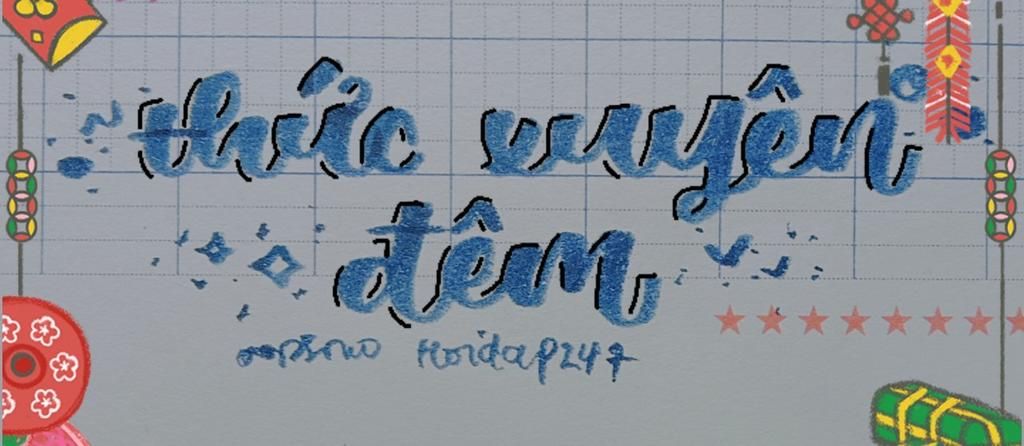 thức xuyên
đêm
Hoidap247